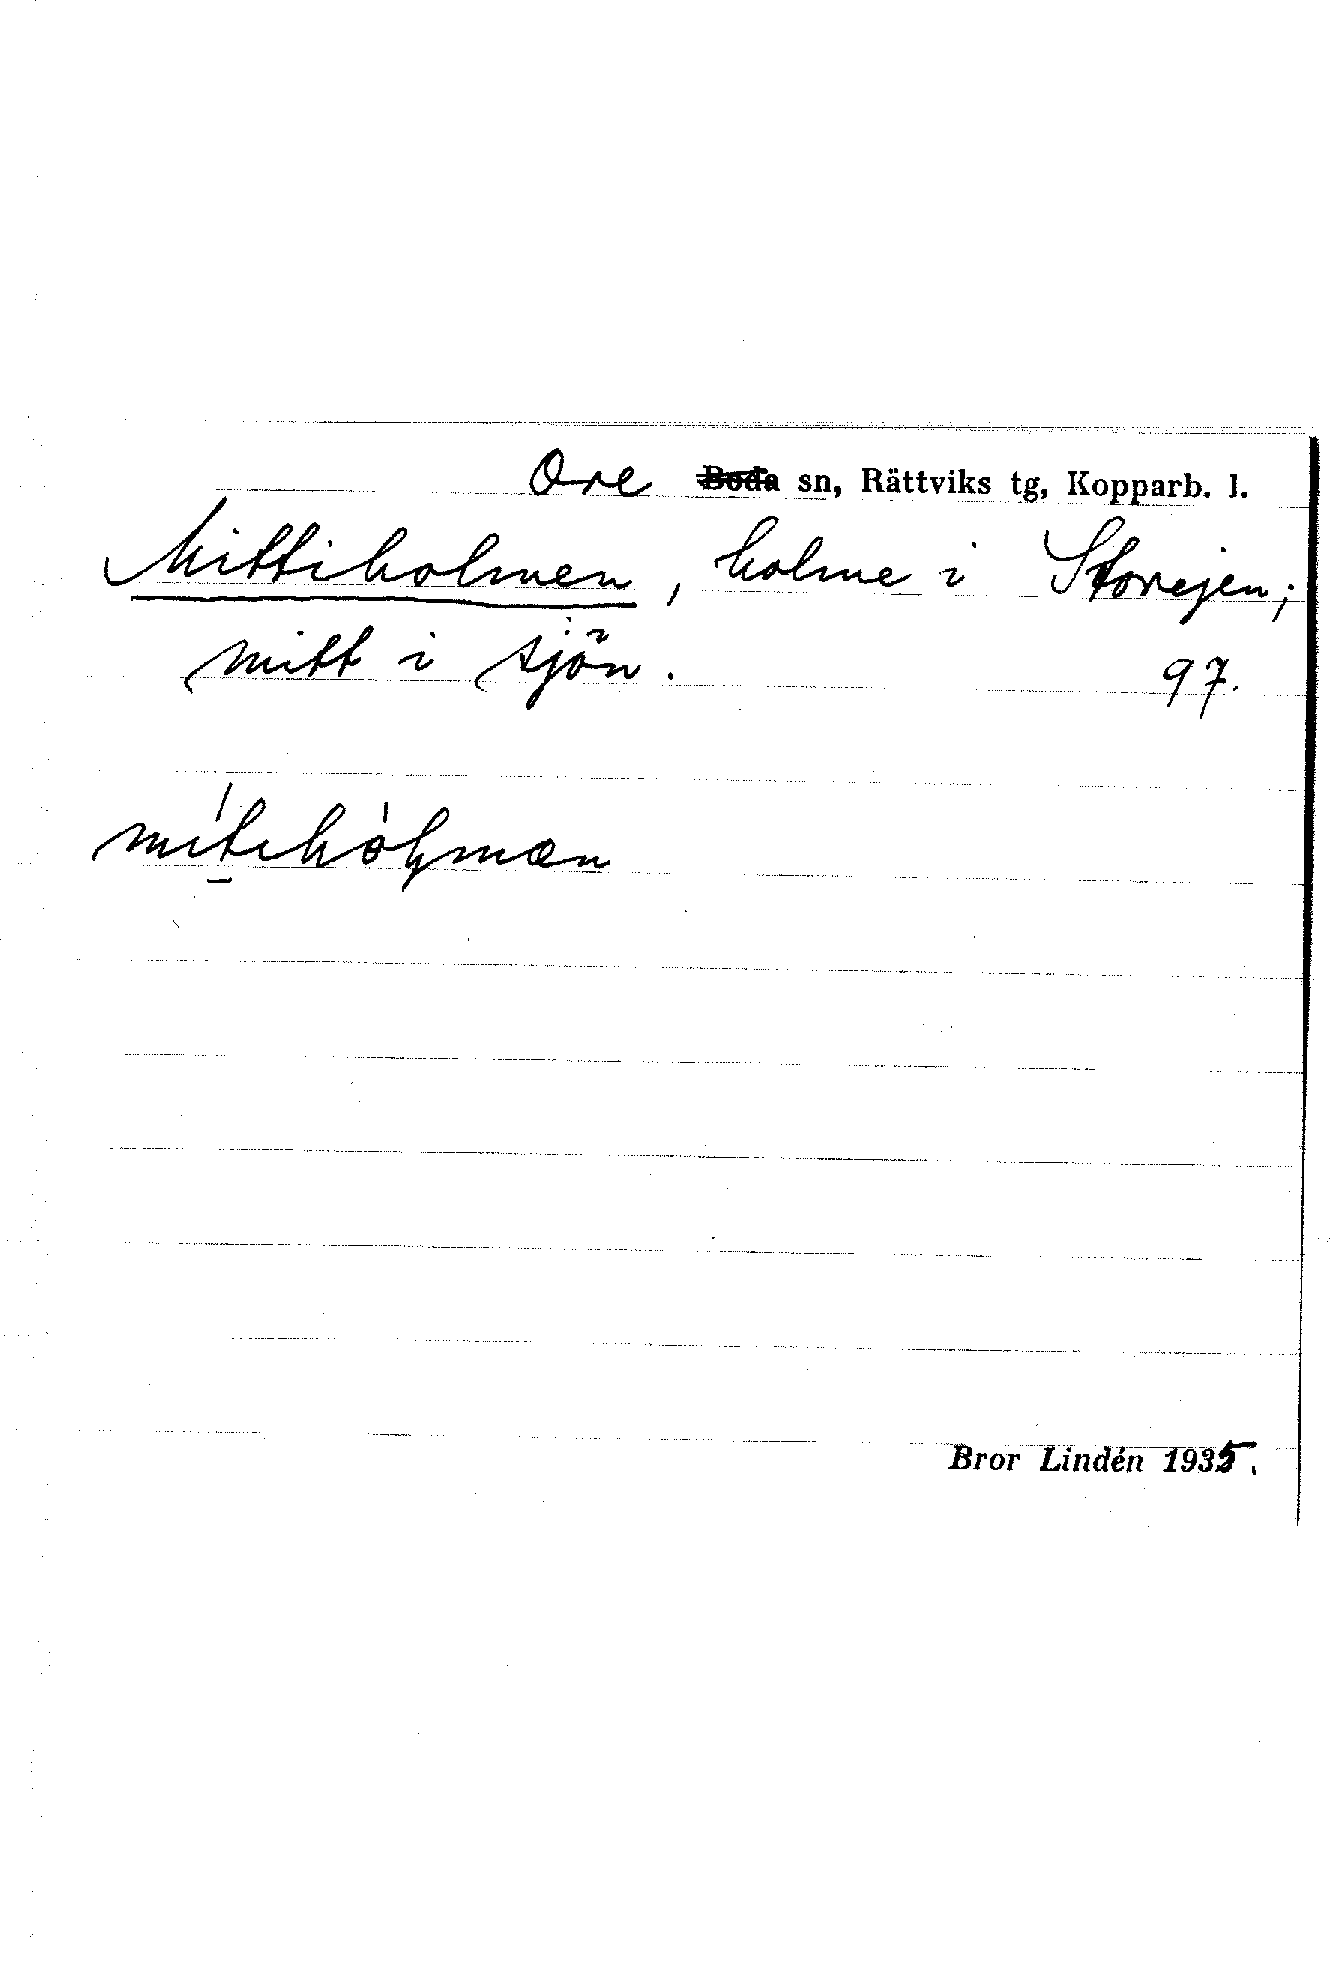 Ore Boda sn, Rättviks tg, Kopparb. l.
Mittiholmen, holme i Storejen;
mitt i sjön. 97.
Bror Lindén 1935.